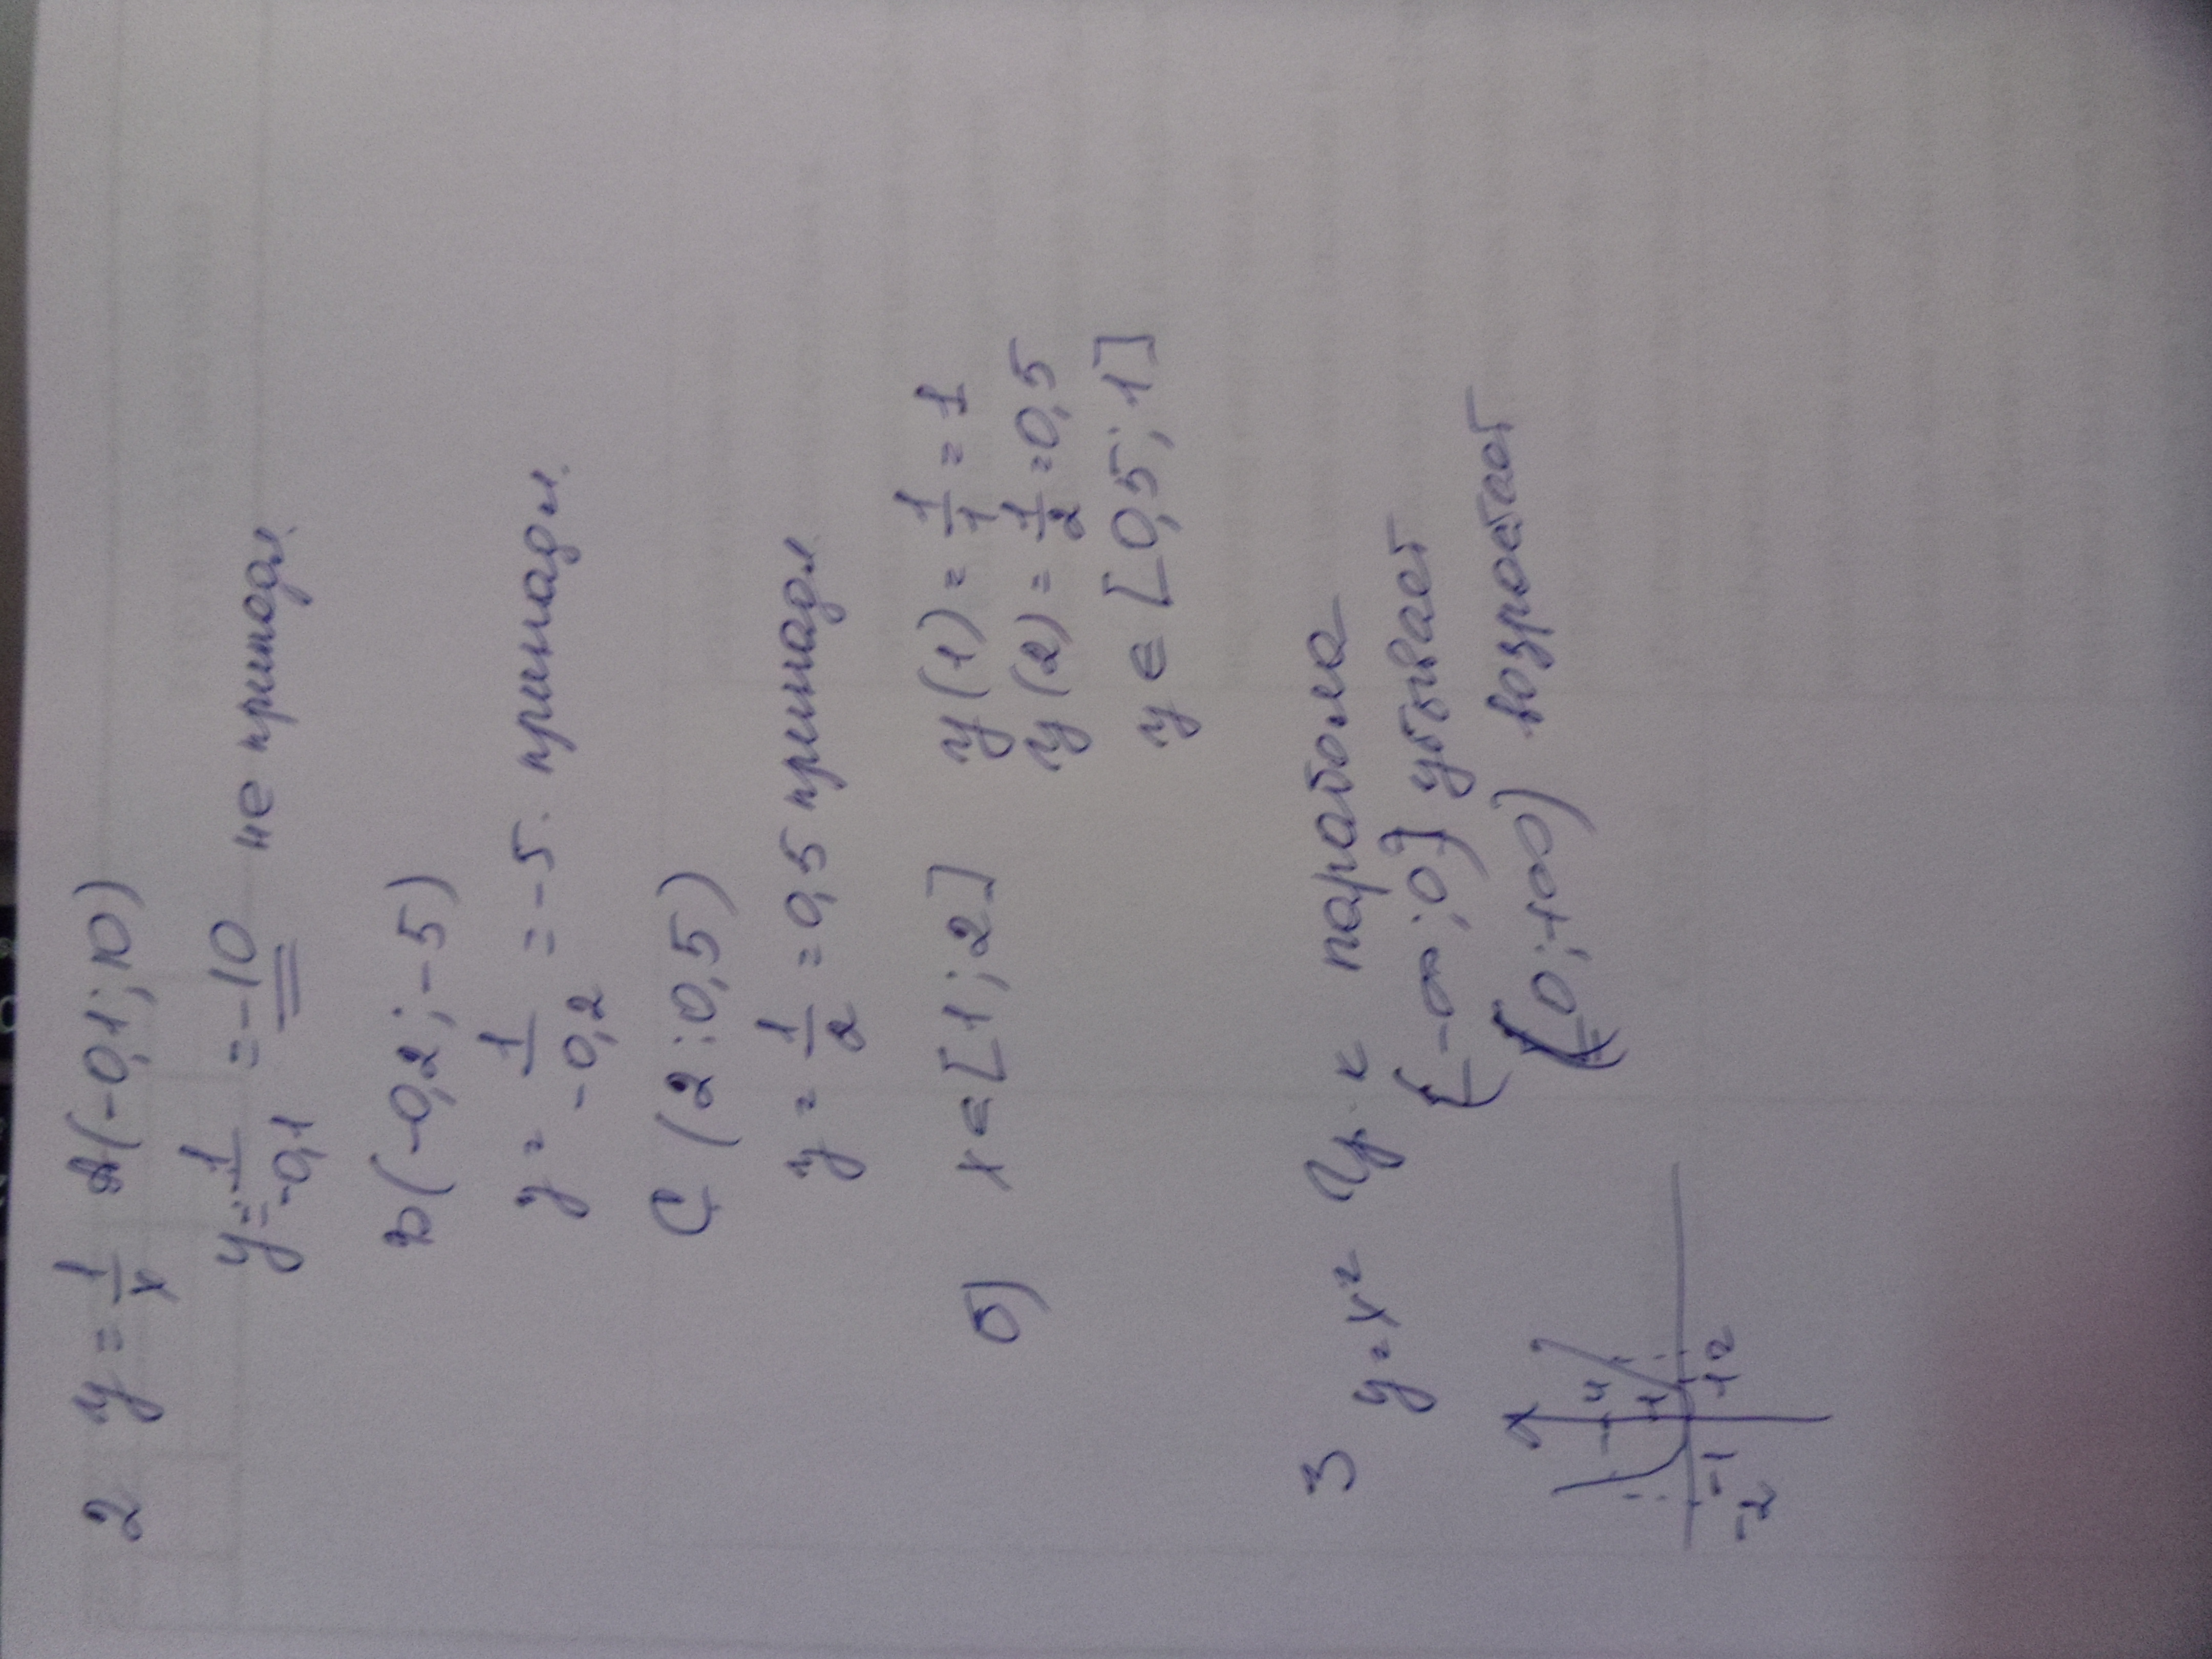 2 y = 1/x A(-0,1; 10)
y = 1/-0,1 = -10 не принадл.
B(-0,2; -5)
y = 1/-0,2 = -5. принадл.
C (2; 0,5)
y = 1/2 = 0,5 принадл
б) x ∈ [1; 2] y(1) = 1/1 = 1
y(2) = 1/2 = 0,5
y ∈ [0,5; 1]
3 y = x² Гр. к парабола
(-∞; 0] убывает
(0; +∞) возрастает
4
1
-2 -1 1 2